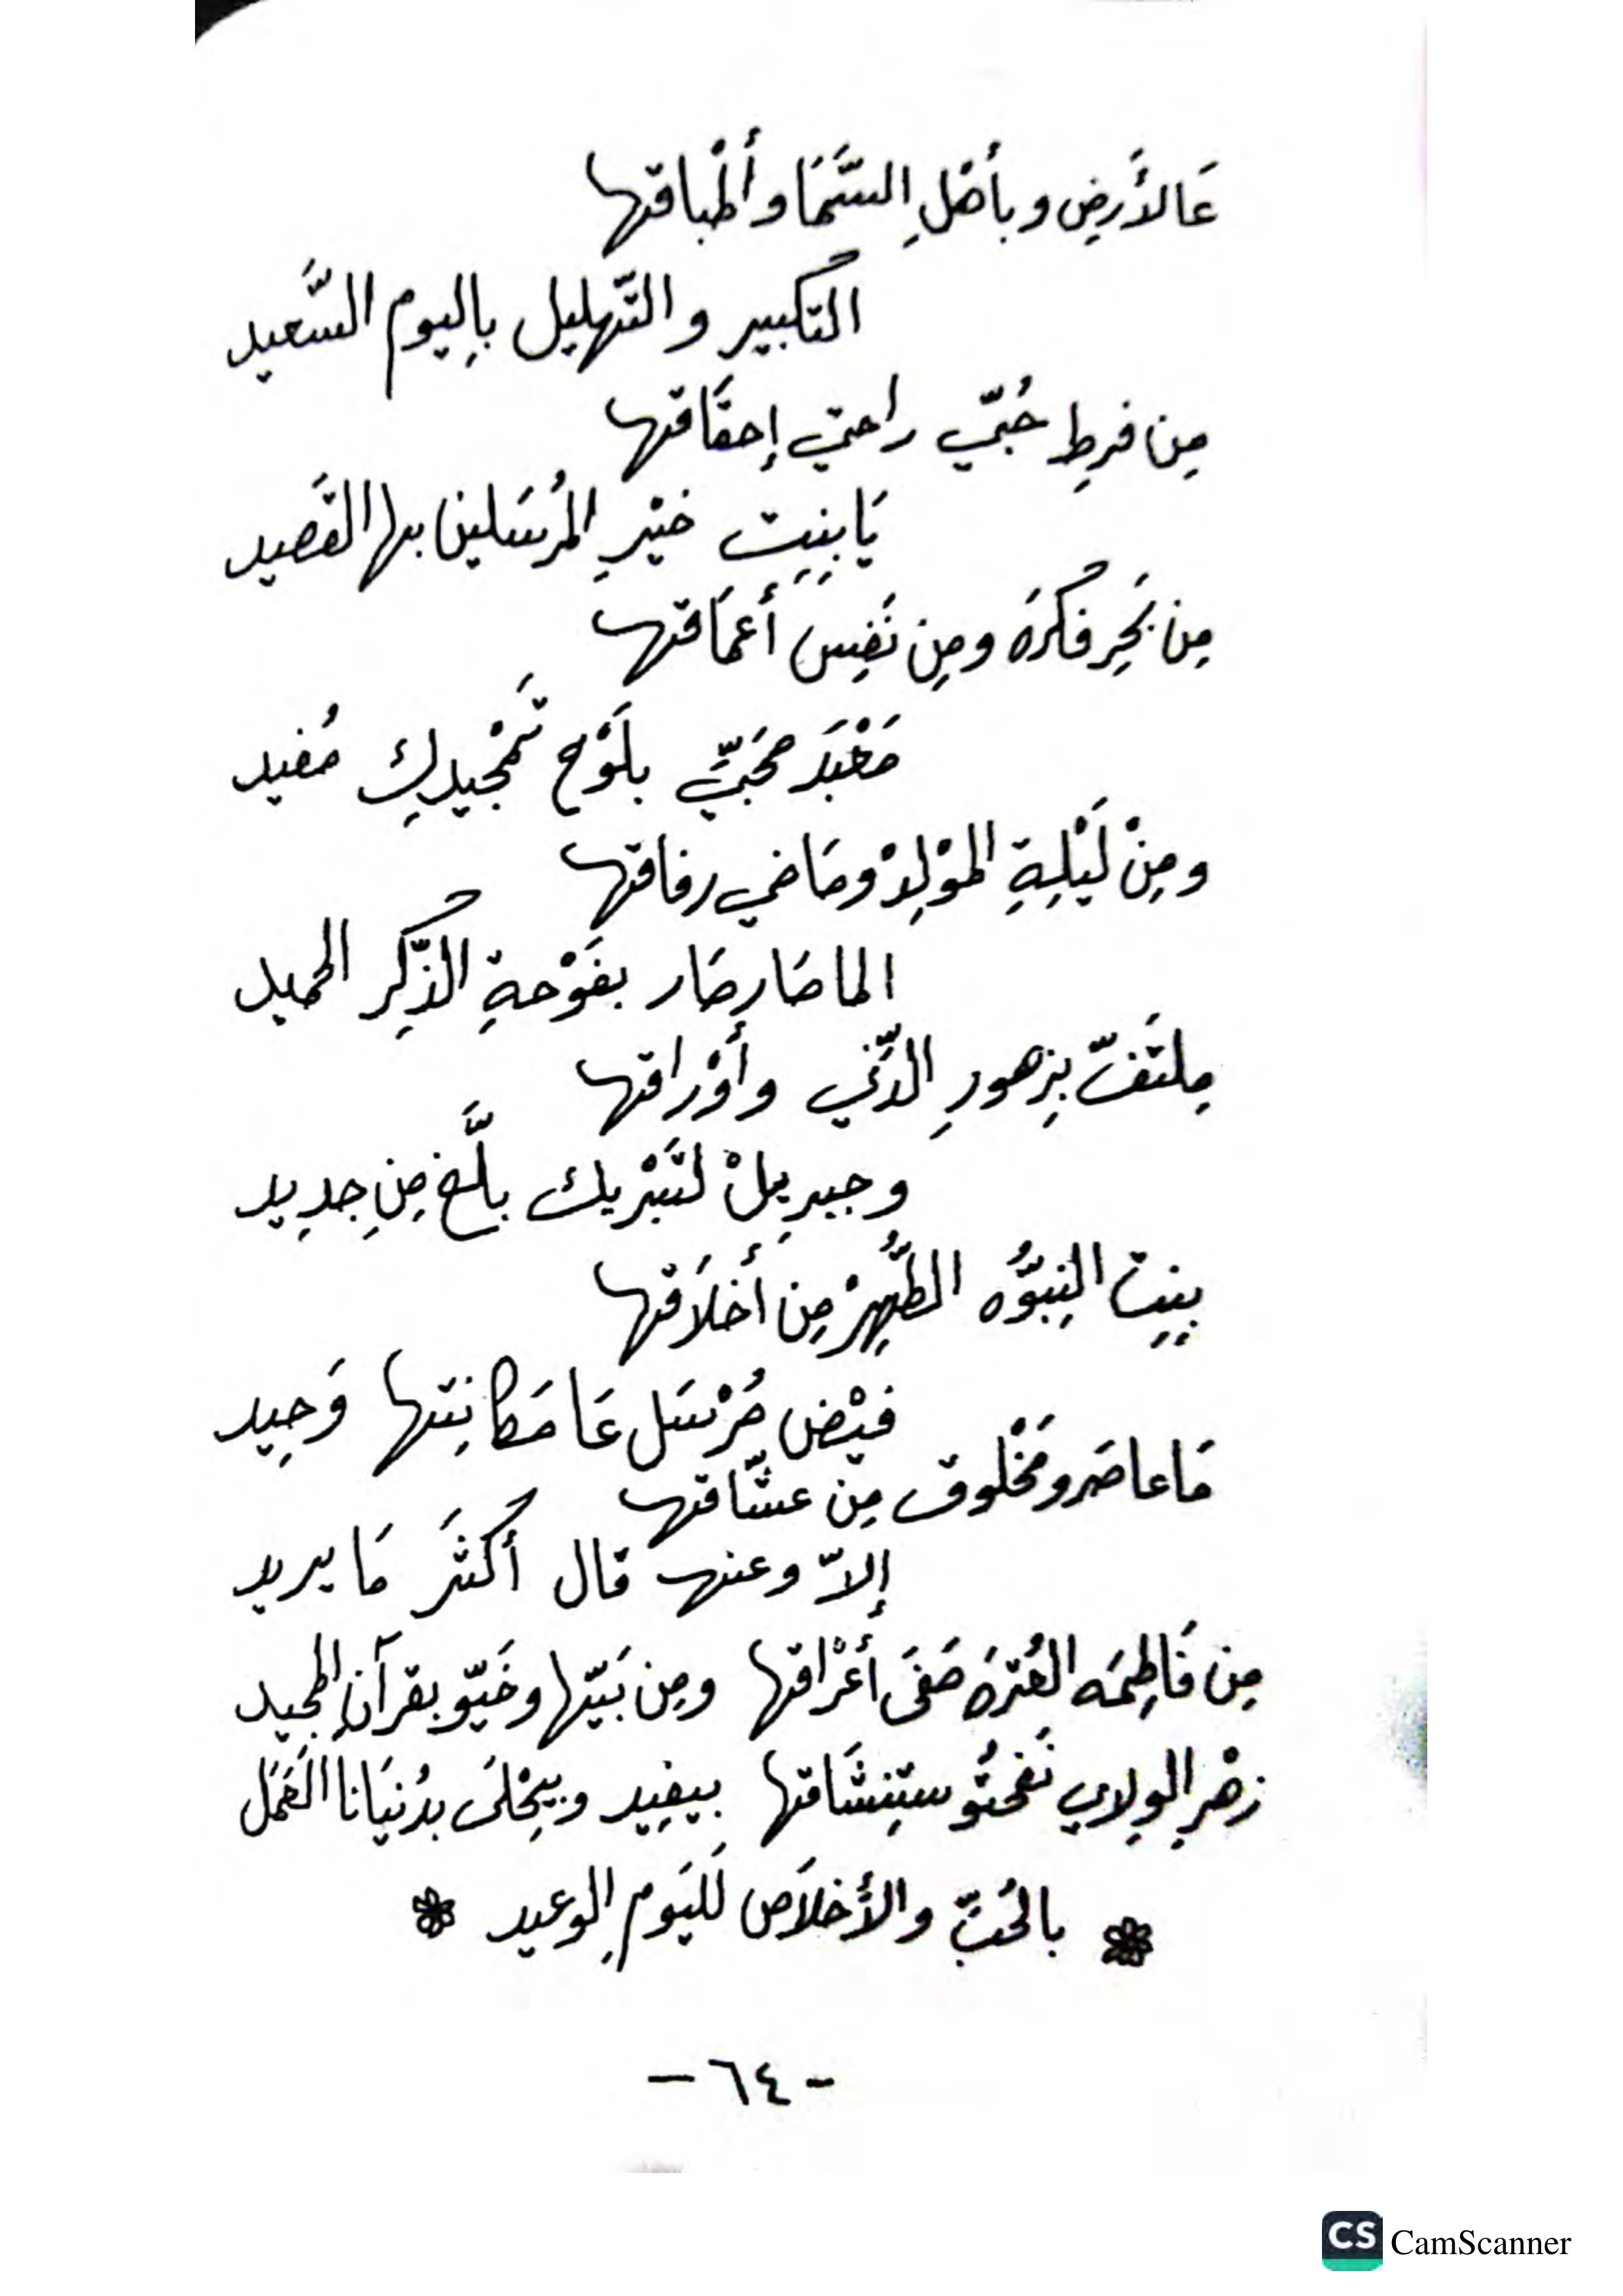 عَالأَرضِ وبأهْلِ السَّمَا وأطْباقتها
التكبير والتّهليل بِاليوم السَّعيد
مِن فرطِ حُبّي راحتي إحقَاقتها
يَا بِنِت خيْرِ المُرسَلين بها القَصيد
مِن بَحِر فكرَه ومِن نَفِس أعمَاقتها
مَعْبَد محَبّي بلَوْح تَمْجيدكِ مُفيد
ومِنْ لَيْلِةِ الموْلِدْ ومَاضي رفاقتها
الما صَار صَار بفَوْحةِ الذِّكر الحميد
مِلتَفّ بِزهورِ الدِّني وأوْراقتها
وجبرِيلْ لتَبْريك بلَّغ مِنِ جدِيد
بِنِت النِبوُّه الطُّهِرْ مِن أَخلاَقتها
فيْض مُرْسَل عَا مَكانِتها وَحِيد
مَا عاصَر ومَخْلوق مِن عشّاقتها
إلاّ وعنها قال أكثَر مَا يريد
مِن فَاطِمَه العُترَه صَفَى أعْرَاقتها ومِن بَيّها وخَيّو بقرآنِ المجيد
زهْرِ الوِلادي نَفحتُو ستِنشَاقتها بيفِيد وبيِحْلَى بدُنيَانا العَمَل
بالحُبّ والأخلاَص لَليَومِ الوعيد
- ٦٤ -
CS CamScanner